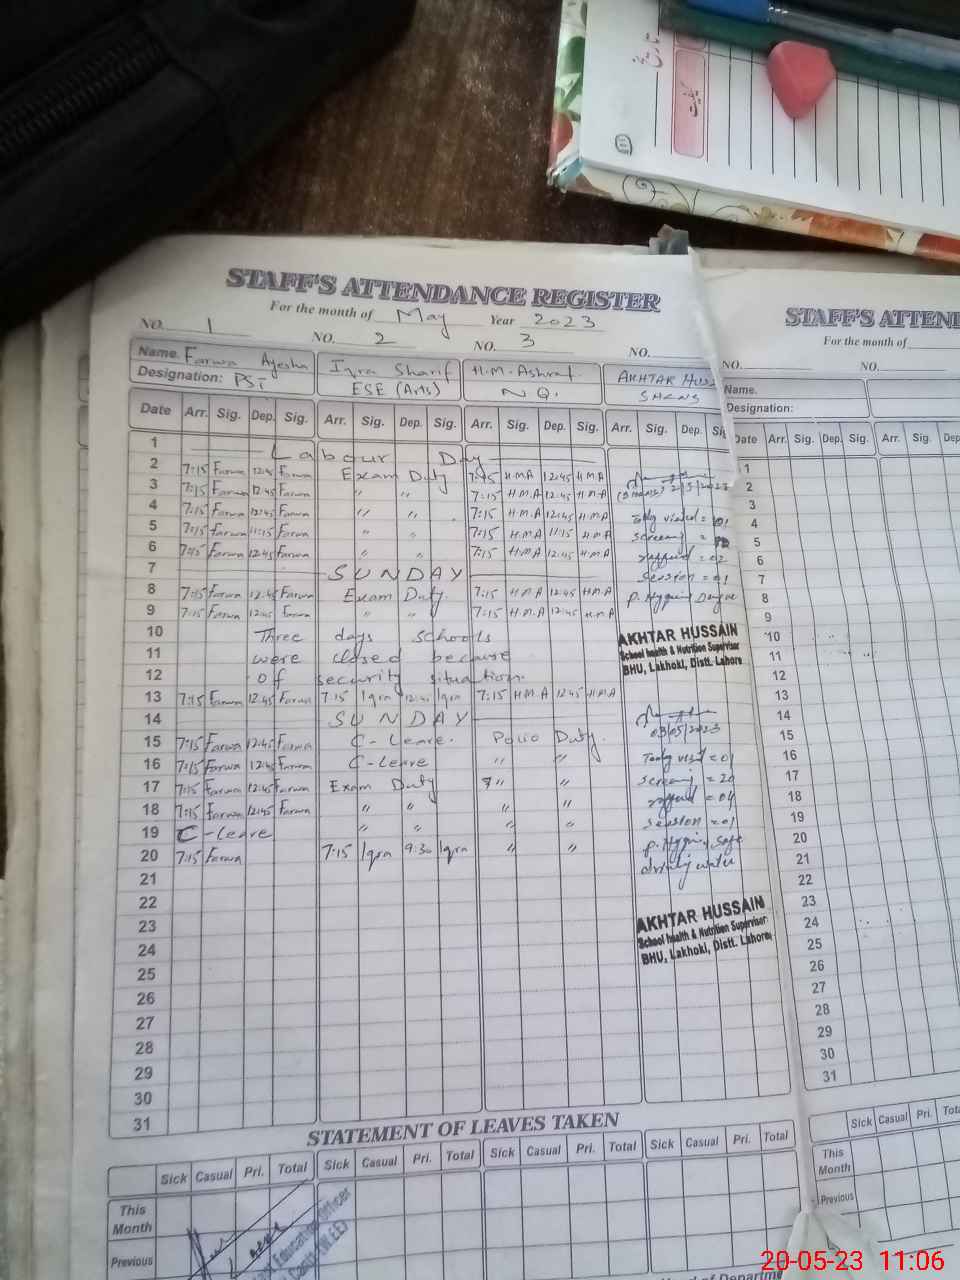 تاریخ
STAFF'S ATTENDANCE REGISTER
For the month of May Year 2023
NO. 1 NO. 2 NO. 3 NO.
Name. Farwa Ayesha Iqra Sharif H.M. Ashraf AKHTAR HUSS
Designation: PSi ESE (Arts) N Q. SH&NS
Date Arr. Sig. Dep. Sig. Arr. Sig. Dep. Sig. Arr. Sig. Dep. Sig. Arr. Sig. Dep. Sig
1 Labour Day
2 7:15 Farwa 12:45 Farwa Exam Duty 7:15 H.M.A 12:45 H.M.A 2/5/2023
3 7:15 Farwa 12:45 Farwa " " 7:15 H.M.A 12:45 H.M.A
4 7:15 Farwa 12:45 Farwa " " 7:15 H.M.A 12:45 H.M.A
5 7:15 Farwa 11:15 Farwa " " 7:15 H.M.A 11:15 H.M.A
6 7:15 Farwa 12:45 Farwa " " 7:15 H.M.A 12:45 H.M.A
7 SUNDAY session = 01
8 7:15 Farwa 12:45 Farwa Exam Duty. 7:15 H.M.A 12:45 H.M.A
9 7:15 Farwa 12:45 Farwa " " 7:15 H.M.A 12:45 H.M.A
10 Three days schools
11 were closed because
12 of security situation.
AKHTAR HUSSAIN
School health & Nutrition Supervisor
BHU, Lakhoki, Distt. Lahore
13 7:15 Farwa 12:45 Farwa 7:15 Iqra 12:45 Iqra 7:15 H.M.A 12:45 H.M.A
14 SUNDAY 03/05/2023
15 7:15 Farwa 12:45 Farwa C-Leave. Polio Duty.
16 7:15 Farwa 12:45 Farwa C-Leave " " visit = 01
17 7:15 Farwa 12:45 Farwa Exam Duty " " = 20
18 7:15 Farwa 12:45 Farwa " " " "
19 C-Leave " " " " session = 01
20 7:15 Farwa 7:15 Iqra 9:30 Iqra " " safe
21 water
22
23
24
AKHTAR HUSSAIN
School health & Nutrition Supervisor
BHU, Lakhoki, Distt. Lahore
25
26
27
28
29
30
31
STATEMENT OF LEAVES TAKEN
Sick Casual Pri. Total Sick Casual Pri. Total Sick Casual Pri. Total Sick Casual Pri. Total
This Month
Previous
Education Officer
STAFF'S ATTEN
For the month of
NO. NO.
Name.
Designation:
Date Arr. Sig. Dep. Sig. Arr. Sig.
1
2
3
4
5
6
7
8
9
10
11
12
13
14
15
16
17
18
19
20
21
22
23
24
25
26
27
28
29
30
31
Sick Casual Pri. Total
This Month
Previous
20-05-23 11:06